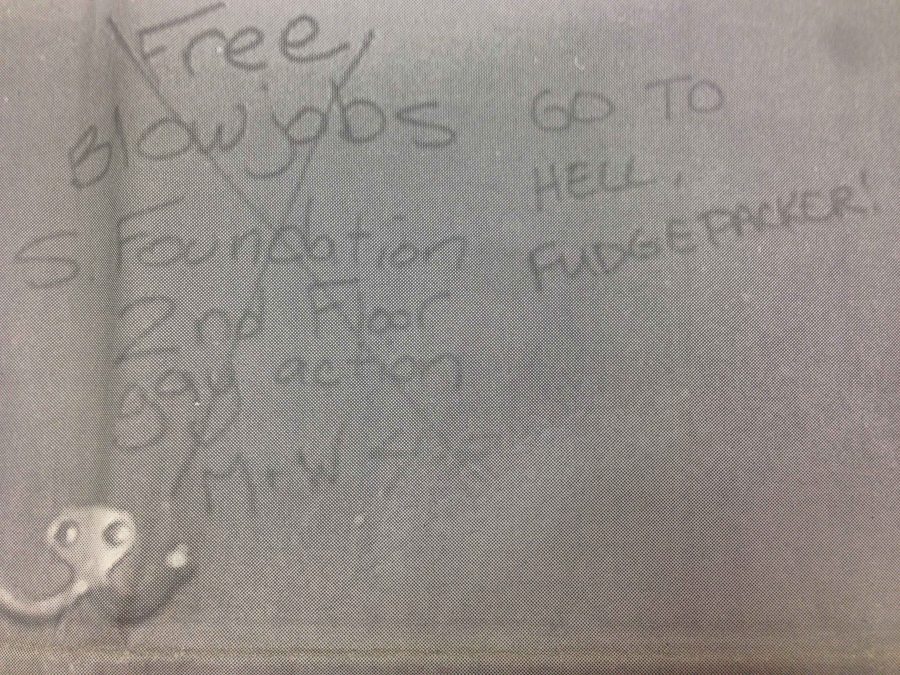 Free
Blowjobs
S. Foundation
2nd Floor
gay action
M+W
GO TO
HELL,
FUDGEPACKER!